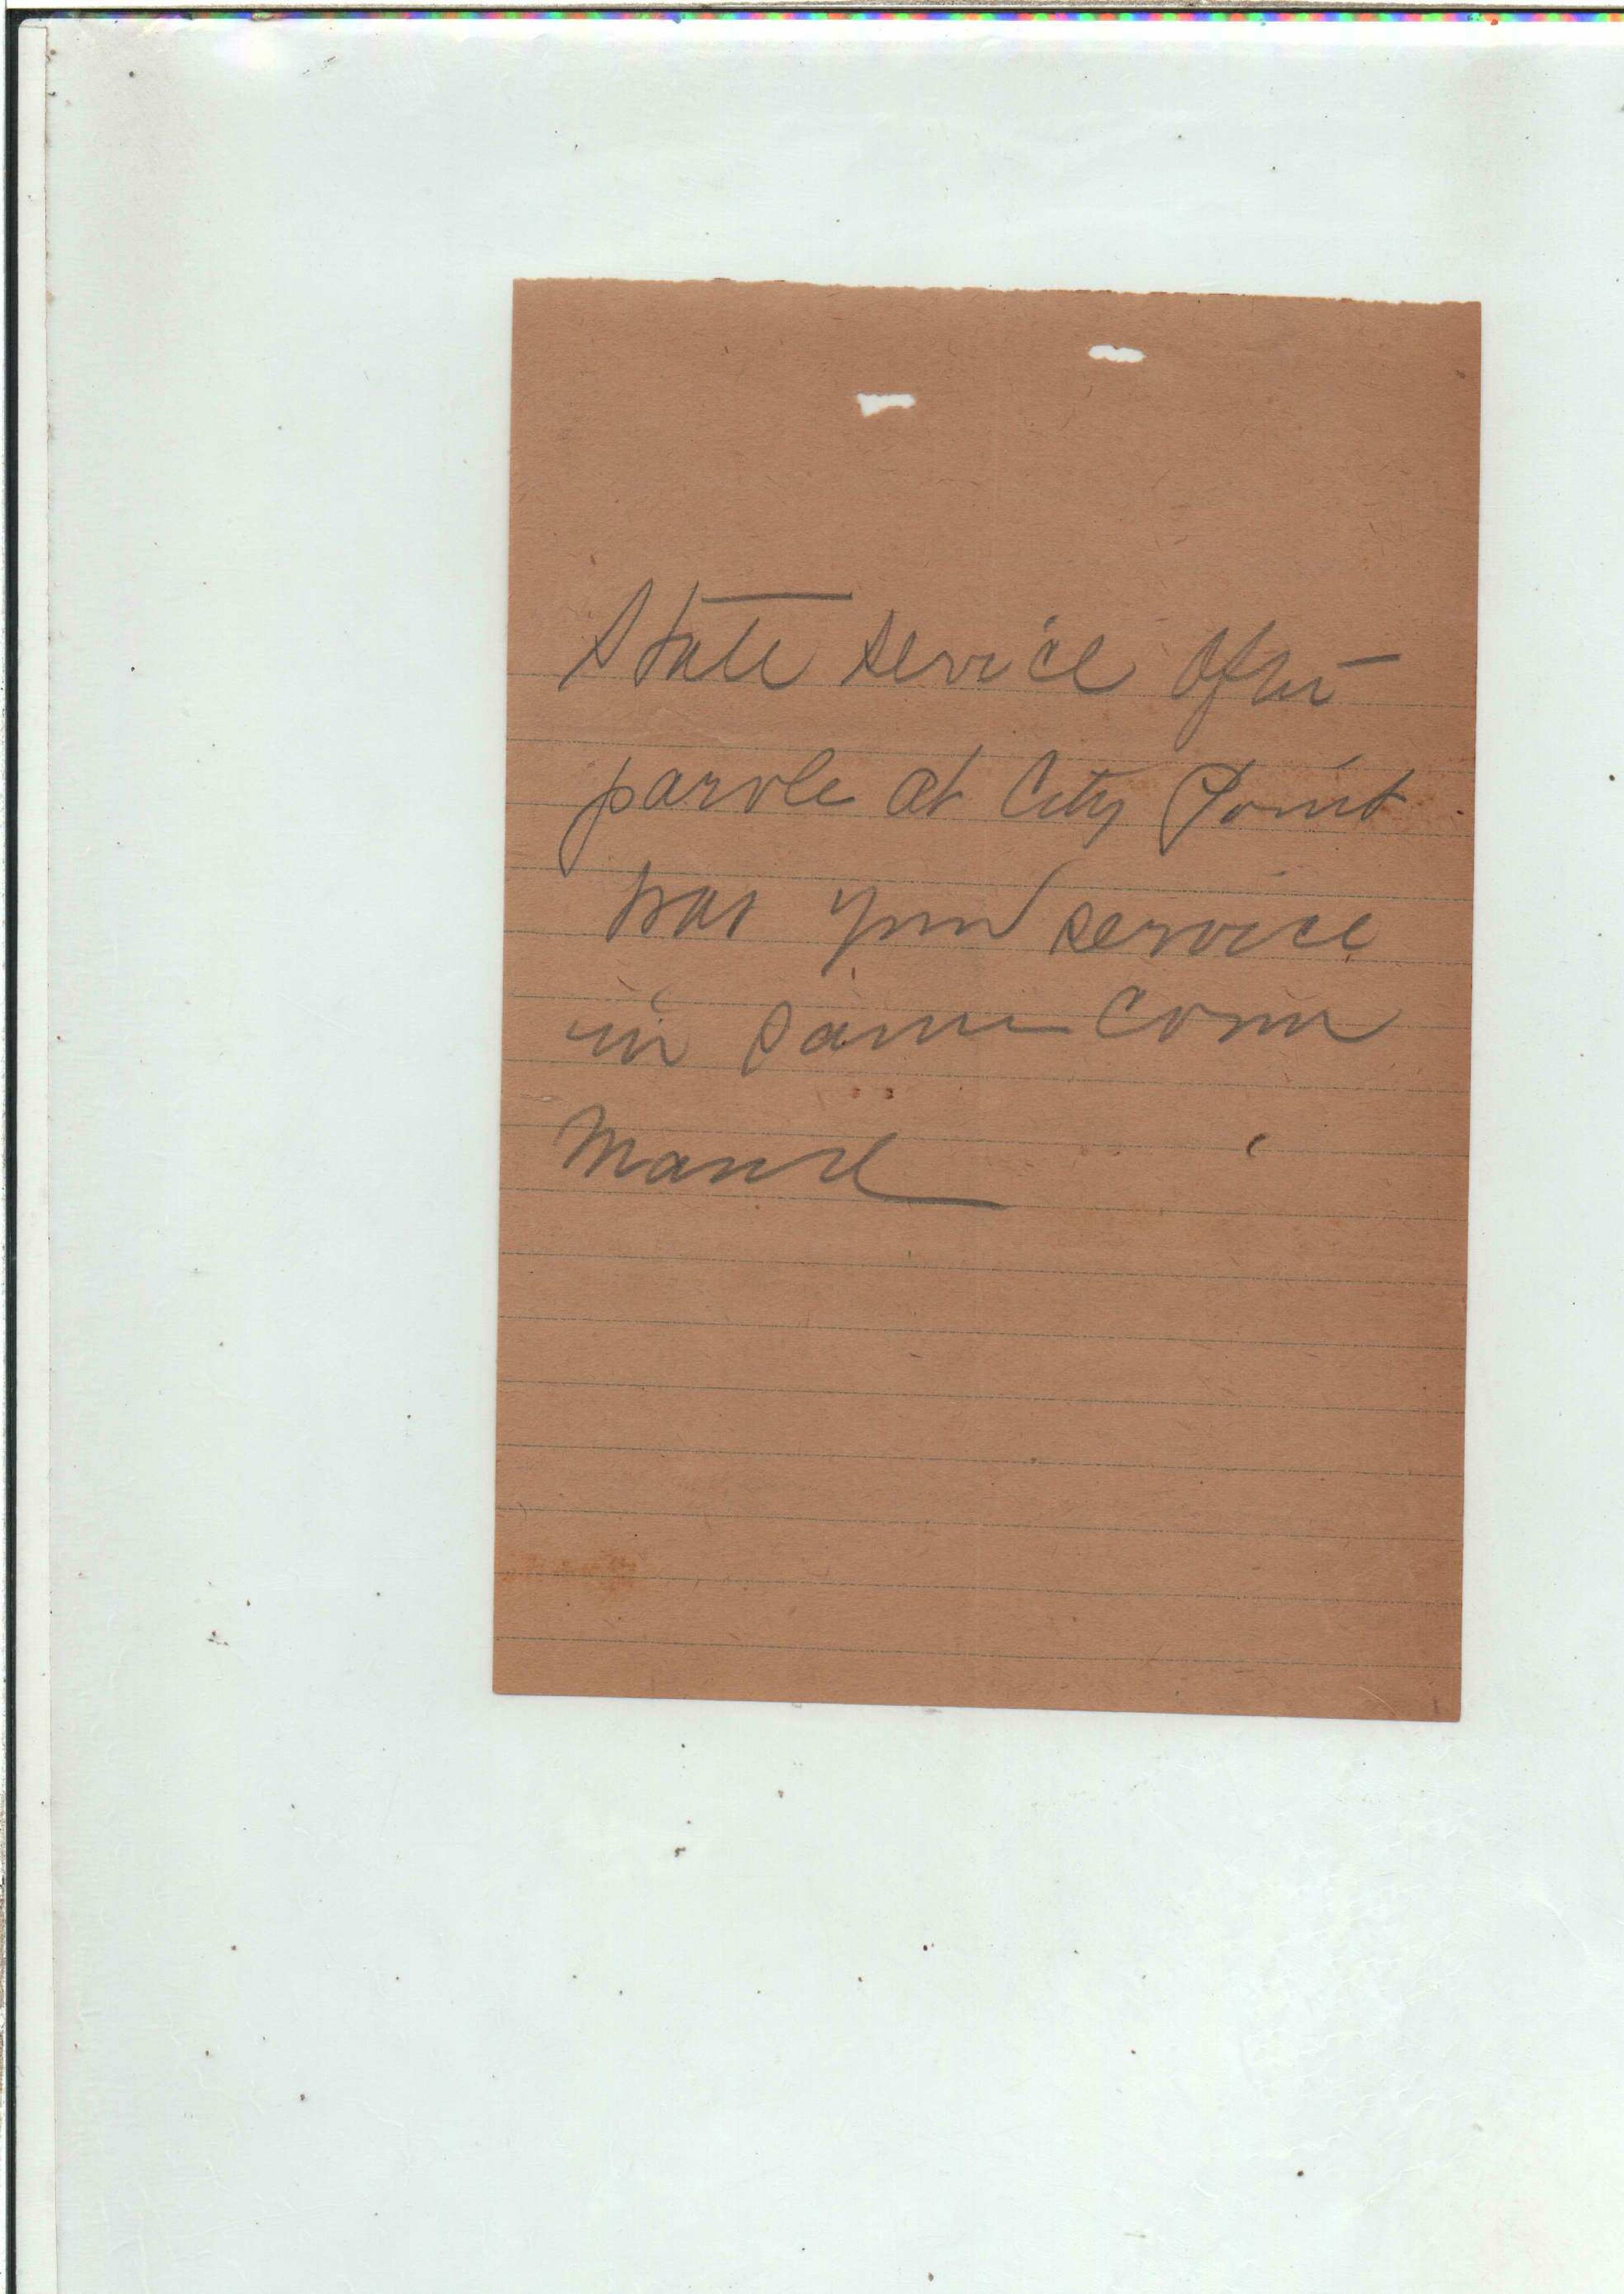 State service after
parole at City Point
was your service
in same Com
mand